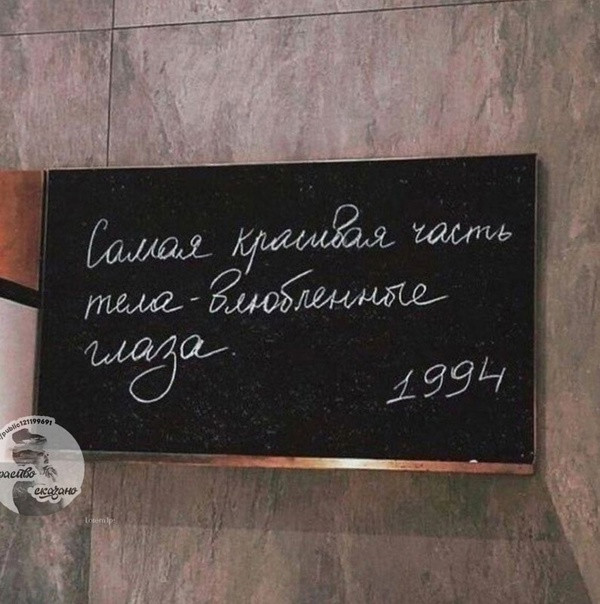 Самая красивая часть
тела - влюбленные
глаза.
1994
/public121199691
сказано